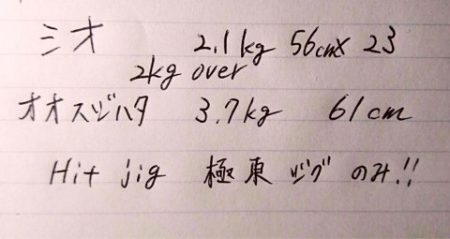 ミオ 2.1kg 56cm× 23
2kg over
オオスジハタ 3.7kg 61cm
Hit jig 極東ジグ のみ!!